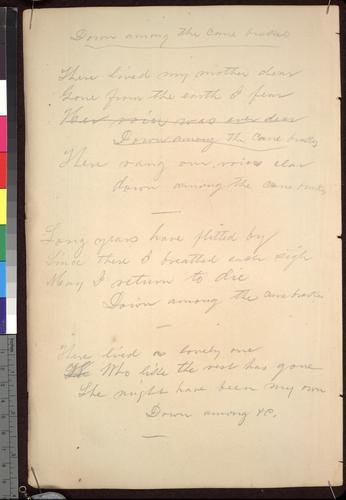 Down among the Cane brakes
There lived my mother dear
Gone from the earth I fear
Her voice was ever dear
Down among the Cane brakes
There rang our voices clear
down among the cane brakes
Long years have flitted by
Since there I breathed each sigh
May I return to die
Down among the cane brakes
There lived a lovely one
Who like the rest has gone
She might have been my own
Down among &c.